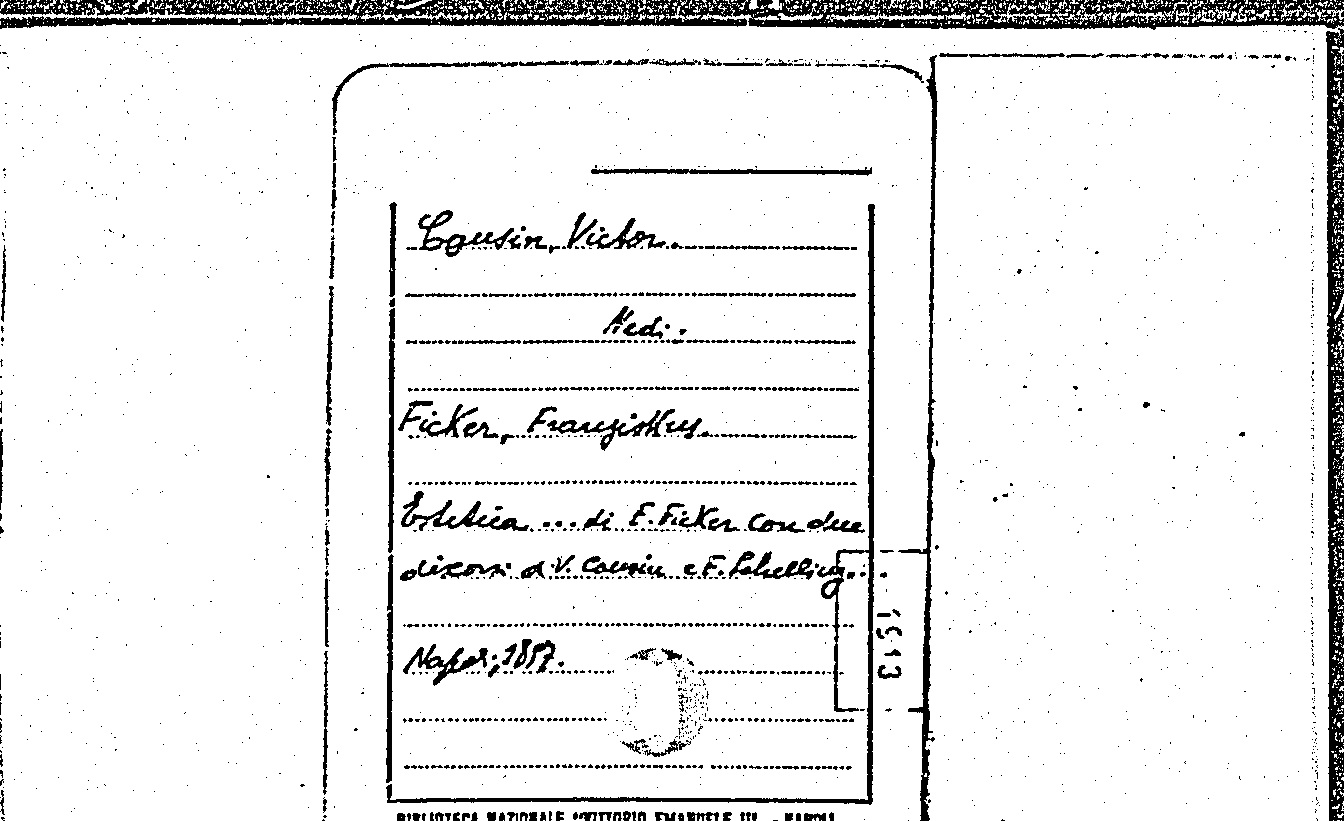 Cousin, Victor.
Vedi:
Ficker, Franziskus.
Estetica ... di F. Ficker con due
discorsi di V. Cousin e F. Schelling...
1913
Napoli, 1857.
BIBLIOTECA NAZIONALE "VITTORIO EMANUELE III" - NAPOLI